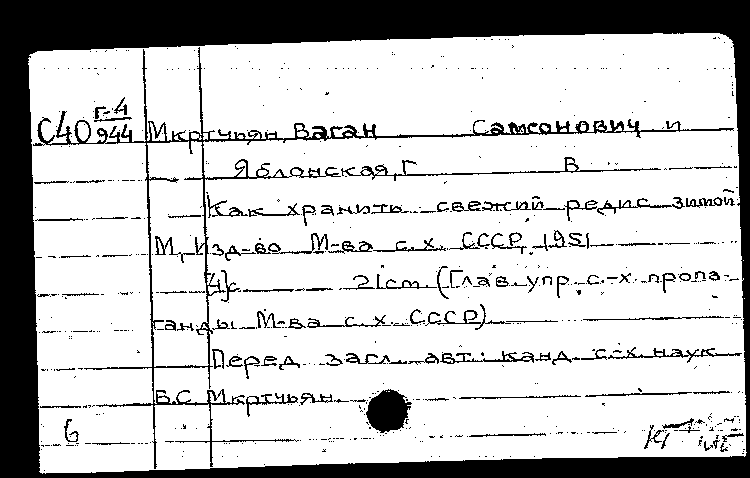 С40 Г-4/944 Мкртчьян, Ваган Самсонович и
Яблонская, Г В
Как хранить свежий редис зимой.
М, Изд-во М-ва с.х. СССР, 1951
4]с 21cm. (Глав. упр. с.-х. пропа-
ганды М-ва с.х. СССР).
Перед загл. авт.: канд. с.-х. наук
В.С. Мкртчьян.
6